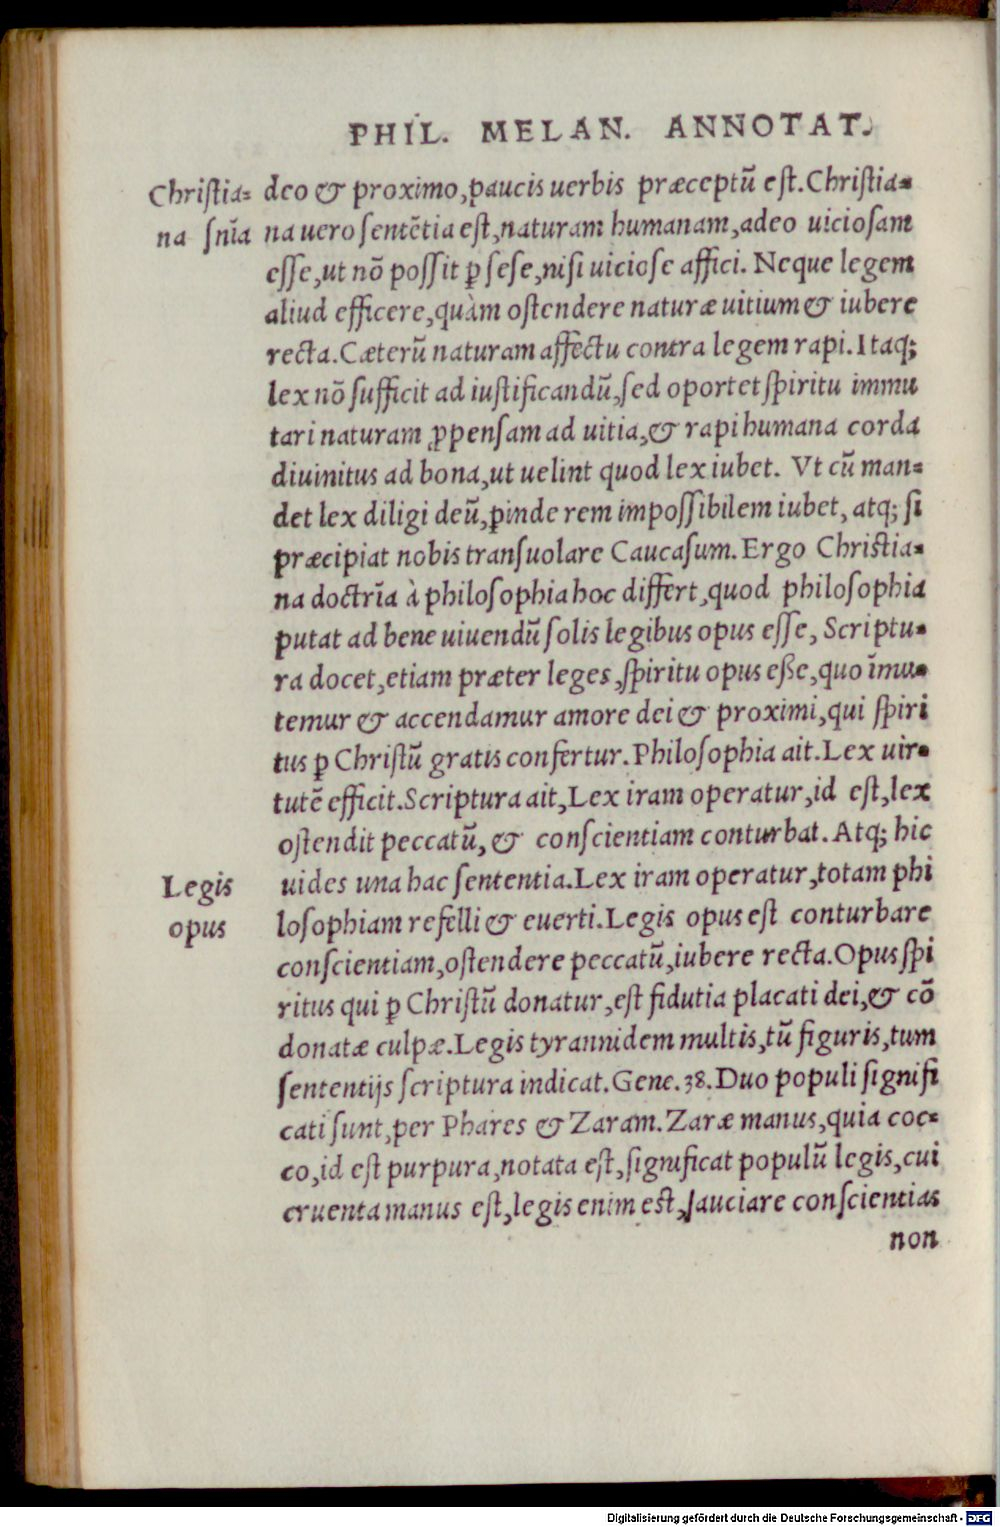 PHIL. MELAN. ANNOTAT.
Christia-
na snīa
deo & proximo, paucis uerbis præceptũ est. Christia-
na uero sentẽtia est, naturam humanam, adeo uiciosam
esse, ut nõ possit ꝑ sese, nisi uiciose affici. Neque legem
aliud efficere, quàm ostendere naturæ uitium & iubere
recta. Cæterũ naturam affectu contra legem rapi. Itaq;
lex nõ sufficit ad iustificandũ, sed oportet spiritu immu
tari naturam ꝓpensam ad uitia, & rapi humana corda
diuinitus ad bona, ut uelint quod lex iubet. Vt cũ man-
det lex diligi deũ, ꝑinde rem impossibilem iubet, atq; si
præcipiat nobis transuolare Caucasum. Ergo Christia-
na doctrĩa à philosophia hoc differt, quod philosophia
putat ad bene uiuendũ solis legibus opus esse, Scriptu-
ra docet, etiam præter leges, spiritu opus eße, quo ĩmu-
temur & accendamur amore dei & proximi, qui spiri
tus ꝑ Christũ gratis confertur. Philosophia ait. Lex uir-
tutẽ efficit. Scriptura ait, Lex iram operatur, id est, lex
ostendit peccatũ, & conscientiam conturbat. Atq; hic
Legis
opus
uides una hac sententia. Lex iram operatur, totam phi
losophiam refelli & euerti. Legis opus est conturbare
conscientiam, ostendere peccatũ, iubere recta. Opus spi
ritus qui ꝑ Christũ donatur, est fidutia placati dei, & cõ
donatæ culpæ. Legis tyrannidem multis, tũ figuris, tum
sententijs scriptura indicat. Gene. 38. Duo populi signifi
cati sunt, per Phares & Zaram. Zaræ manus, quia coc-
co, id est purpura, notata est, significat populũ legis, cui
cruenta manus est, legis enim est, sauciare conscientias
non
Digitalisierung gefördert durch die Deutsche Forschungsgemeinschaft - DFG